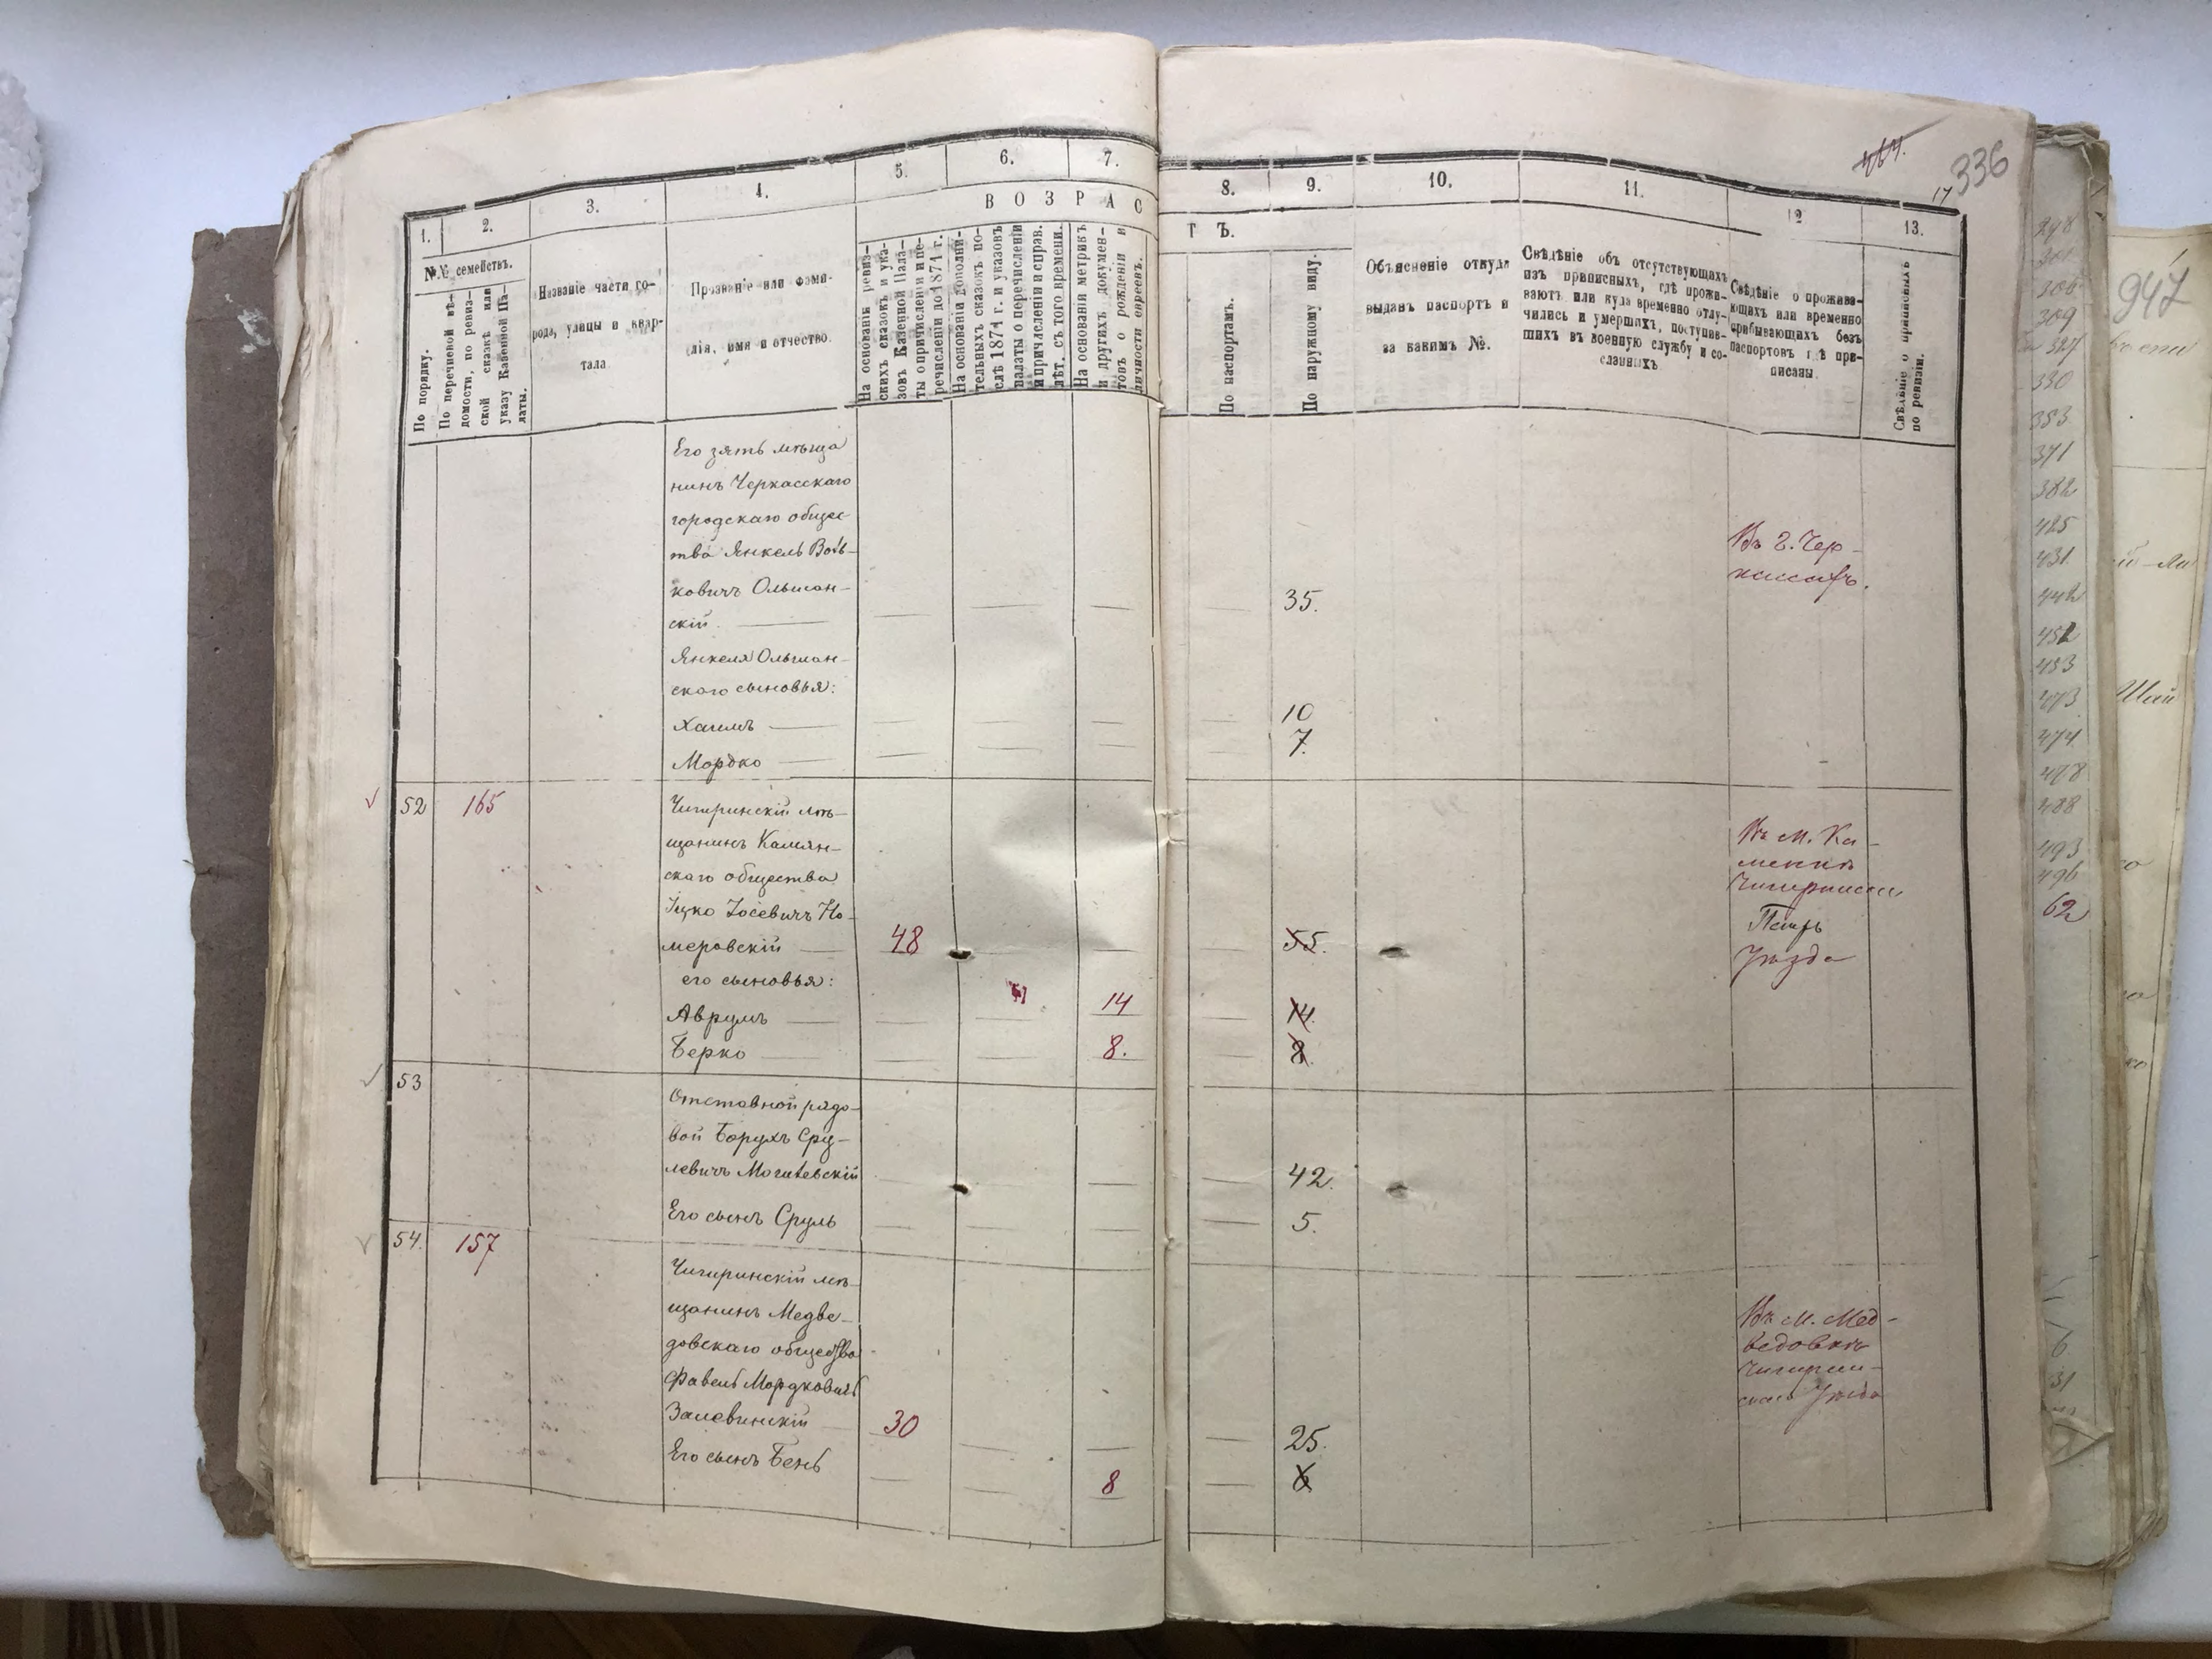 464.
336
17
1.
2.
3.
4.
5.
6.
7.
8.
9.
10.
11.
12
13.
В О З Р А С
Т Ъ.
№№ семействъ.
По порядку.
По перечневой вѣ-
домости, по ревиз-
ской сказкѣ или
указу Казенной Па-
латы.
Названіе части го-
рода, улицы и квар-
тала
Прозваніе или фами-
лія, имя и отчество.
На основаніи ревиз-
скихъ сказокъ и ука-
зовъ Казенной Пала-
ты о причисленіи и пе-
речисленіи до 1874 г.
На основаніи дополни-
тельныхъ сказокъ по-
слѣ 1874 г. и указовъ
палаты о перечисленіи
и причисленіи и справ.
лѣт. съ того времени.
На основаніи метрикъ
и другихъ докумен-
товъ о рожденіи и
личности евреевъ.
По паспортамъ.
По наружному виду.
Объясненіе откуда
выданъ паспортъ и
за какимъ №.
Свѣдѣніе объ отсутствующихъ
изъ приписныхъ, гдѣ прожи-
ваютъ или куда временно отлу-
чились и умершихъ, поступив-
шихъ въ военную службу и со-
сланныхъ
Свѣдѣніе о прожива-
ющихъ или временно
прибывающихъ безъ
паспортовъ гдѣ при-
писаны
Свѣдѣніе о приписныхъ
по ревизіи.
Его зять мѣща
нинъ Черкасскаго
городскаго общес-
тва Янкель Воль-
ковичъ Ольшан-
скій. 35.
Въ г. Чер-
кассахъ.
Янкеля Ольшан-
ского сыновья:
Хаимъ 10
Мордко 7.
52 165 Чигиринскій мѣ-
щанинъ Камян-
скаго общества
Ицко Іосевичъ Но-
меровскій 48 55.
Въ м. Ка-
менкѣ
Чигиринск
Уѣзда
его сыновья:
Аврумъ 14 14.
Берко 8. 8
53
Отставной рядо-
вой Борухъ Сру-
левичъ Могилевскій 42.
Его сынъ Сруль 5.
54. 157
Чигиринскій мѣ-
щанинъ Медве-
довскаго общества
Файвель Мордковичъ
30 25.
Въ м. Мед-
ведовкѣ
Чигирин-
скаго Уѣзда
Его сынъ Бень 8 6
947
298
309
327
330
353
371
382
425
431
442
452
453
473
474
478
488
493
496
62